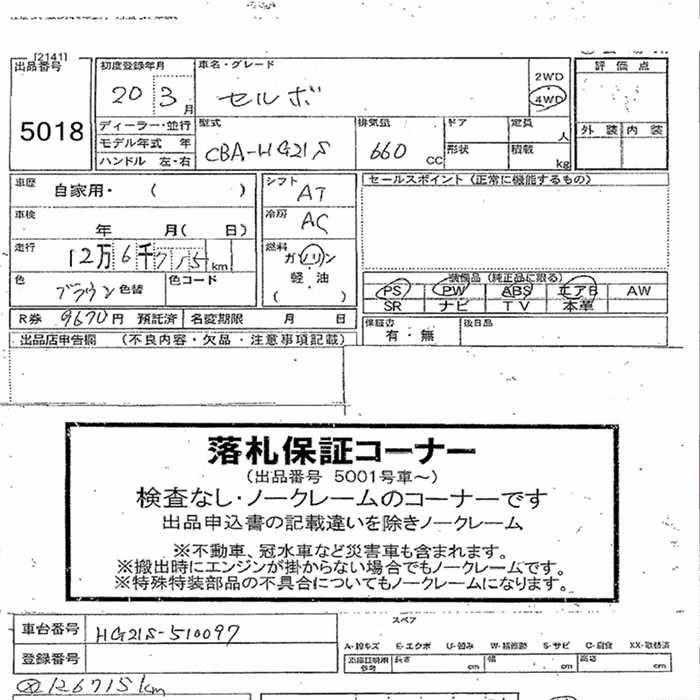 [2141]
出品番号
5018
初度登録年月
20 3月
車名・グレード
セルボ
2WD
4WD
評価点
外装 内装
ディーラー・並行
モデル年式 年
ハンドル 左・右
型式
CBA-HG21S
排気量
660 CC
ドア
形状
定員
人
積載
kg
車歴
自家用・ ( )
車検
年 月( 日)
走行
12万6千715km
色
ブラウン 色替
色コード
シフト
AT
冷房
AC
燃料
ガソリン
軽・油
( )
セールスポイント (正常に機能するもの)
装備品 (純正品に限る)
PS PW ABS エアB AW
SR ナビ TV 本革
R券 9670円 預託済 名変期限 月 日
保証書
有・無
後日品
出品店申告欄 (不良内容・欠品・注意事項記載)
落札保証コーナー
(出品番号 5001号車~)
検査なし・ノークレームのコーナーです
出品申込書の記載違いを除きノークレーム
※不動車、冠水車など災害車も含まれます。
※搬出時にエンジンが掛からない場合でもノークレームです。
※特殊特装部品の不具合についてもノークレームになります。
車台番号
HG21S-510097
登録番号
スペア
A-線キズ E-エクボ U-凹み W-補修跡 S-サビ C-腐食 XX-取替済
長さ cm 幅 cm 高さ cm
126715km